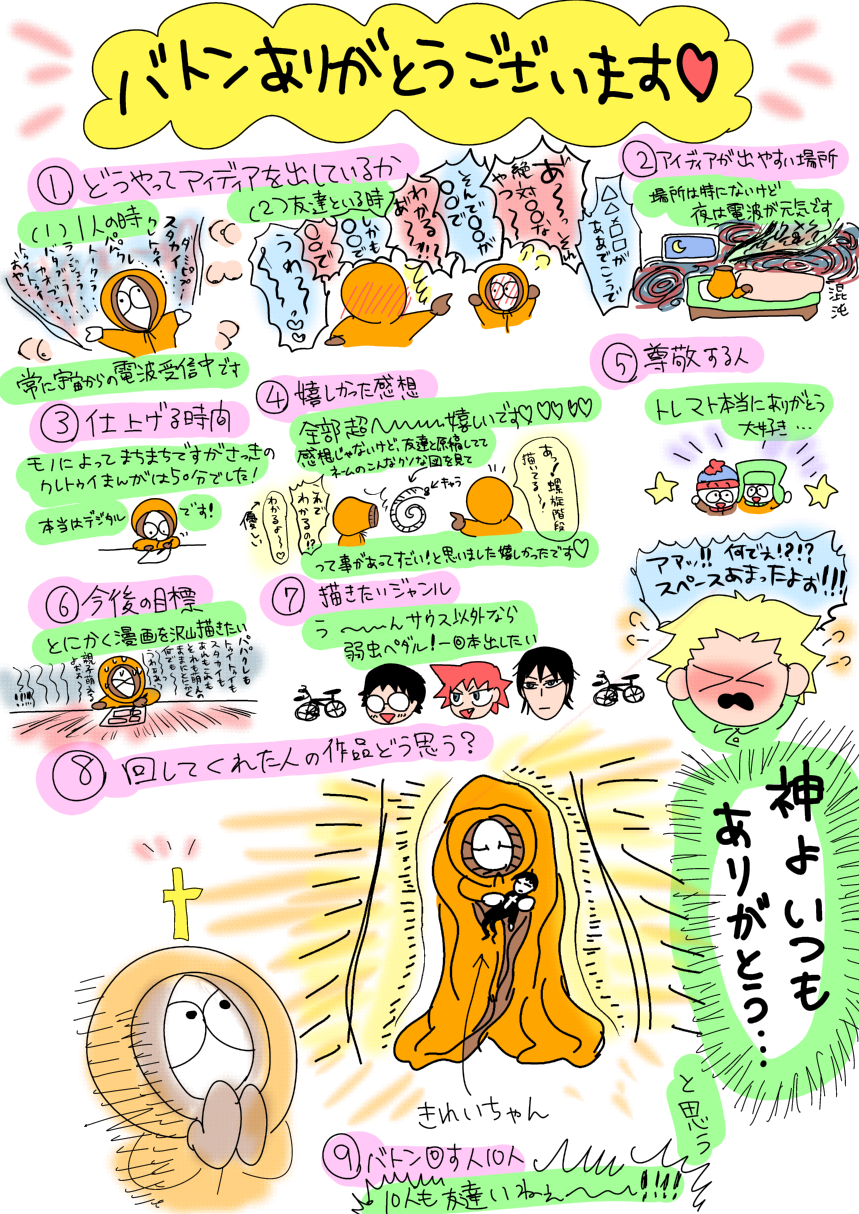 バトンありがとうございます♡
① どうやってアイディアを出しているか
(1) 1人の時
スタカイ
パパクレ
常に宇宙からの電波受信中です
(2) 友達といる時
あ〜っ、それ
絶対〇〇な
やつ〜〜
そんで〇〇が
〇〇で
わかる〜!?!
あ゛
しかも
〇〇で
〇〇で
うわ〜〜♡
△△、□□が
ああでこうで
② アイディアが出やすい場所
場所は特にないけど
夜は電波が元気です
混沌
③ 仕上げる時間
モノによってまちまちですがさっきの
クレトゥイまんがは50分でした!
本当はデジタル
です!
④ 嬉しかった感想
全部超〜〜〜嬉しいです♡♡♡♡
感想じゃないけど、友達と原稿してて
ネームのこんなクソな図を見て
キャラ
あっ!螺旋階段
描いてる〜!
それで
わかるの!?
わかるよ〜♡
優しい
って事があってすごい!と思いました嬉しかったです♡
⑤ 尊敬する人
トレマト本当にありがとう
大好き…
アアッ!! 何でぇ!?!?
スペースあまったよぉ!!!
⑥ 今後の目標
とにかく漫画を沢山描きたい
パパクレも
トゥイトゥイも
スタカイも
⑦ 描きたいジャンル
う〜〜んサウス以外なら
弱虫ペダル!一回本出したい
⑧ 回してくれた人の作品どう思う?
きれいちゃん
神よいつも
ありがとう…
と思う
⑨ バトン回す人10人
10人も友達いねぇ〜〜!!!!